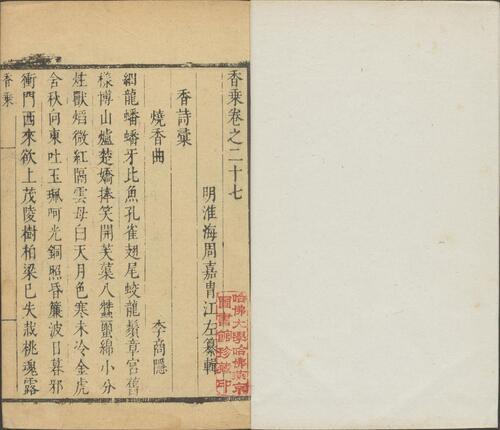 香乘卷之二十七
明淮海周嘉胄江左纂輯
香詩彙
燒香曲　李商隱
龍蟠蟠牙比魚孔雀翅尾蛟龍鬚章宮舊
樣博山爐楚嬌捧笑開芙蕖八蠶繭綿小分
炷獸焰微紅隔雲母白天月色寒未冷金虎
含秋向東吐玉珮呵光銅照昏簾波日暮邪
衝門西來欲上茂陵樹柏梁已失栽桃魂露
香乘
哈佛大學哈佛燕京
圖書館珍藏印